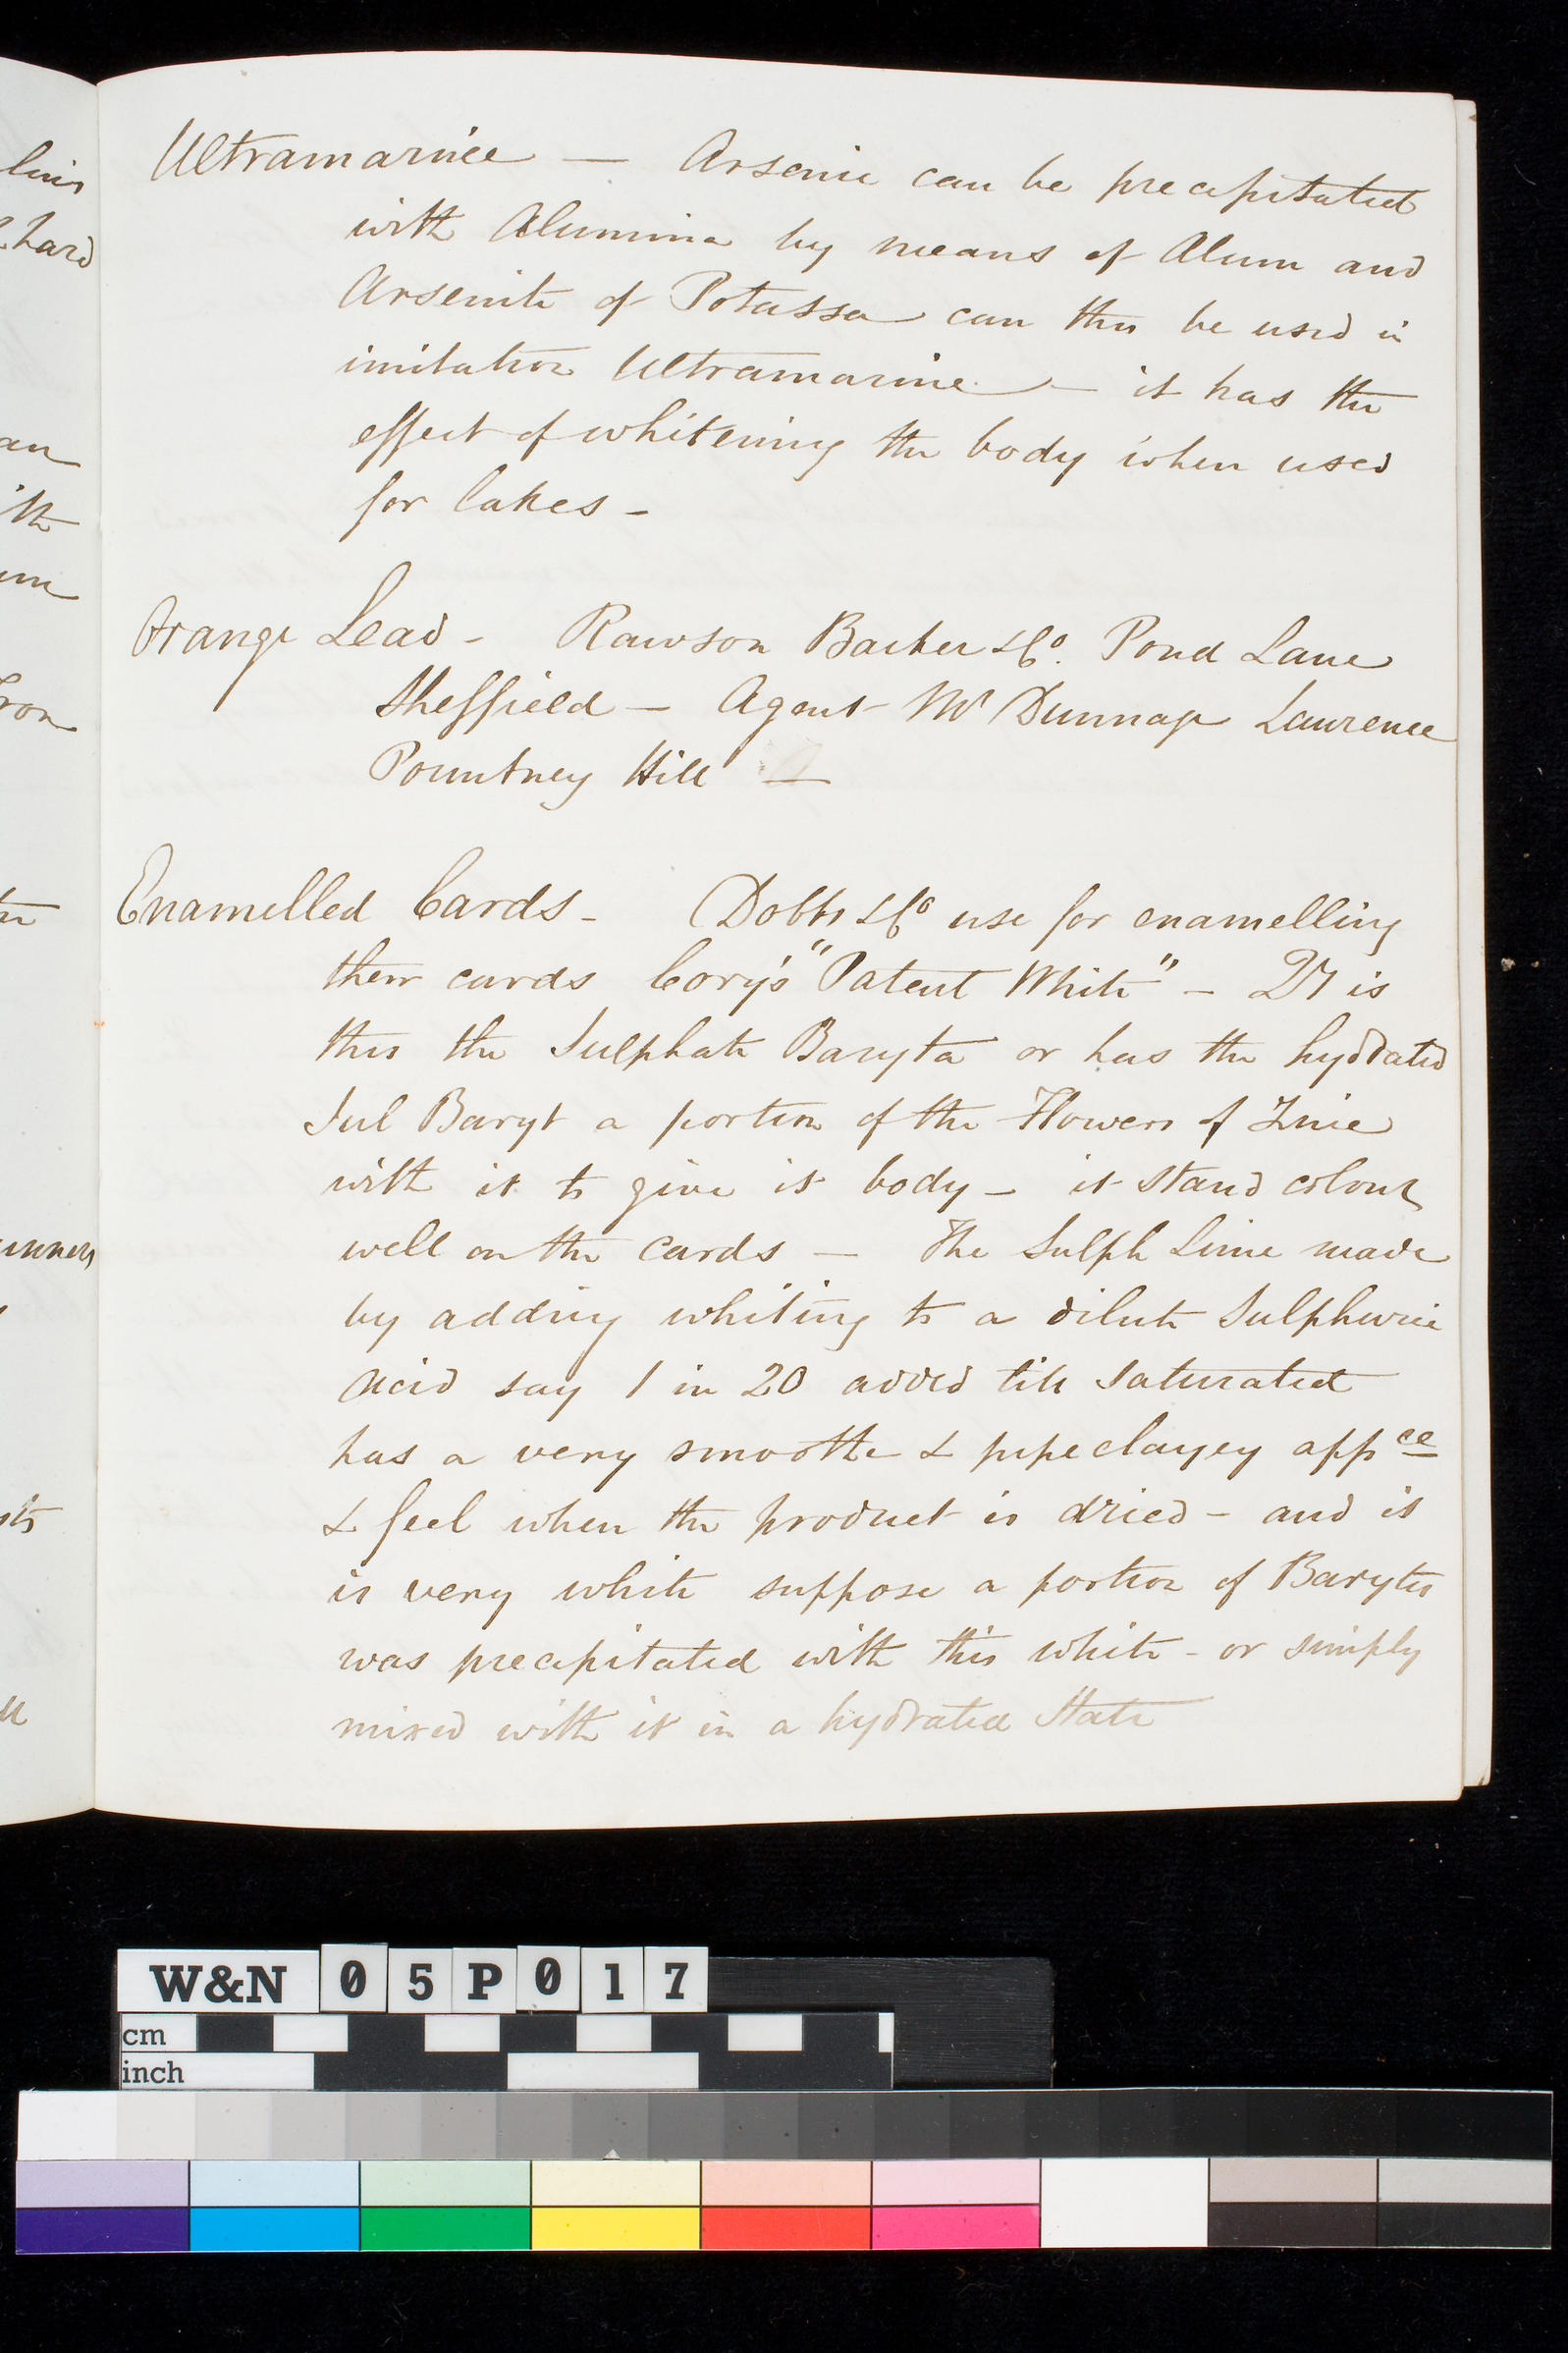 Ultramarine — Arsenic can be precipitated
with Alumina by means of Alum and
Arsenite of Potassa can this be used in
imitation Ultramarine — it has the
effect of whitening the body when used
for lakes -
Orange Lead - Rawson Barker & Co. Pond Lane
Sheffield — Agent Mr Dunnage Laurence
Pountney Hill —
Enamelled Cards - Dobbs & Co use for enamelling
their cards Cory's "Patent White" - Qy is
this the Sulphate Baryta or has the hydrated
Sul Baryt a portion of the Flowers of Zinc
with it to give it body - it stand colour
well on the cards — The Sulph Lime made
by adding whiting to a dilute Sulphuric
Acid say 1 in 20 added till saturated
has a very smooth & pipe clayey appce
& feel when the product is dried - and it
is very white suppose a portion of Barytes
was precipitated with this white - or simply
mixed with it in a hydrated State
hard
an
ith
um
W&N 05P017
cm
inch